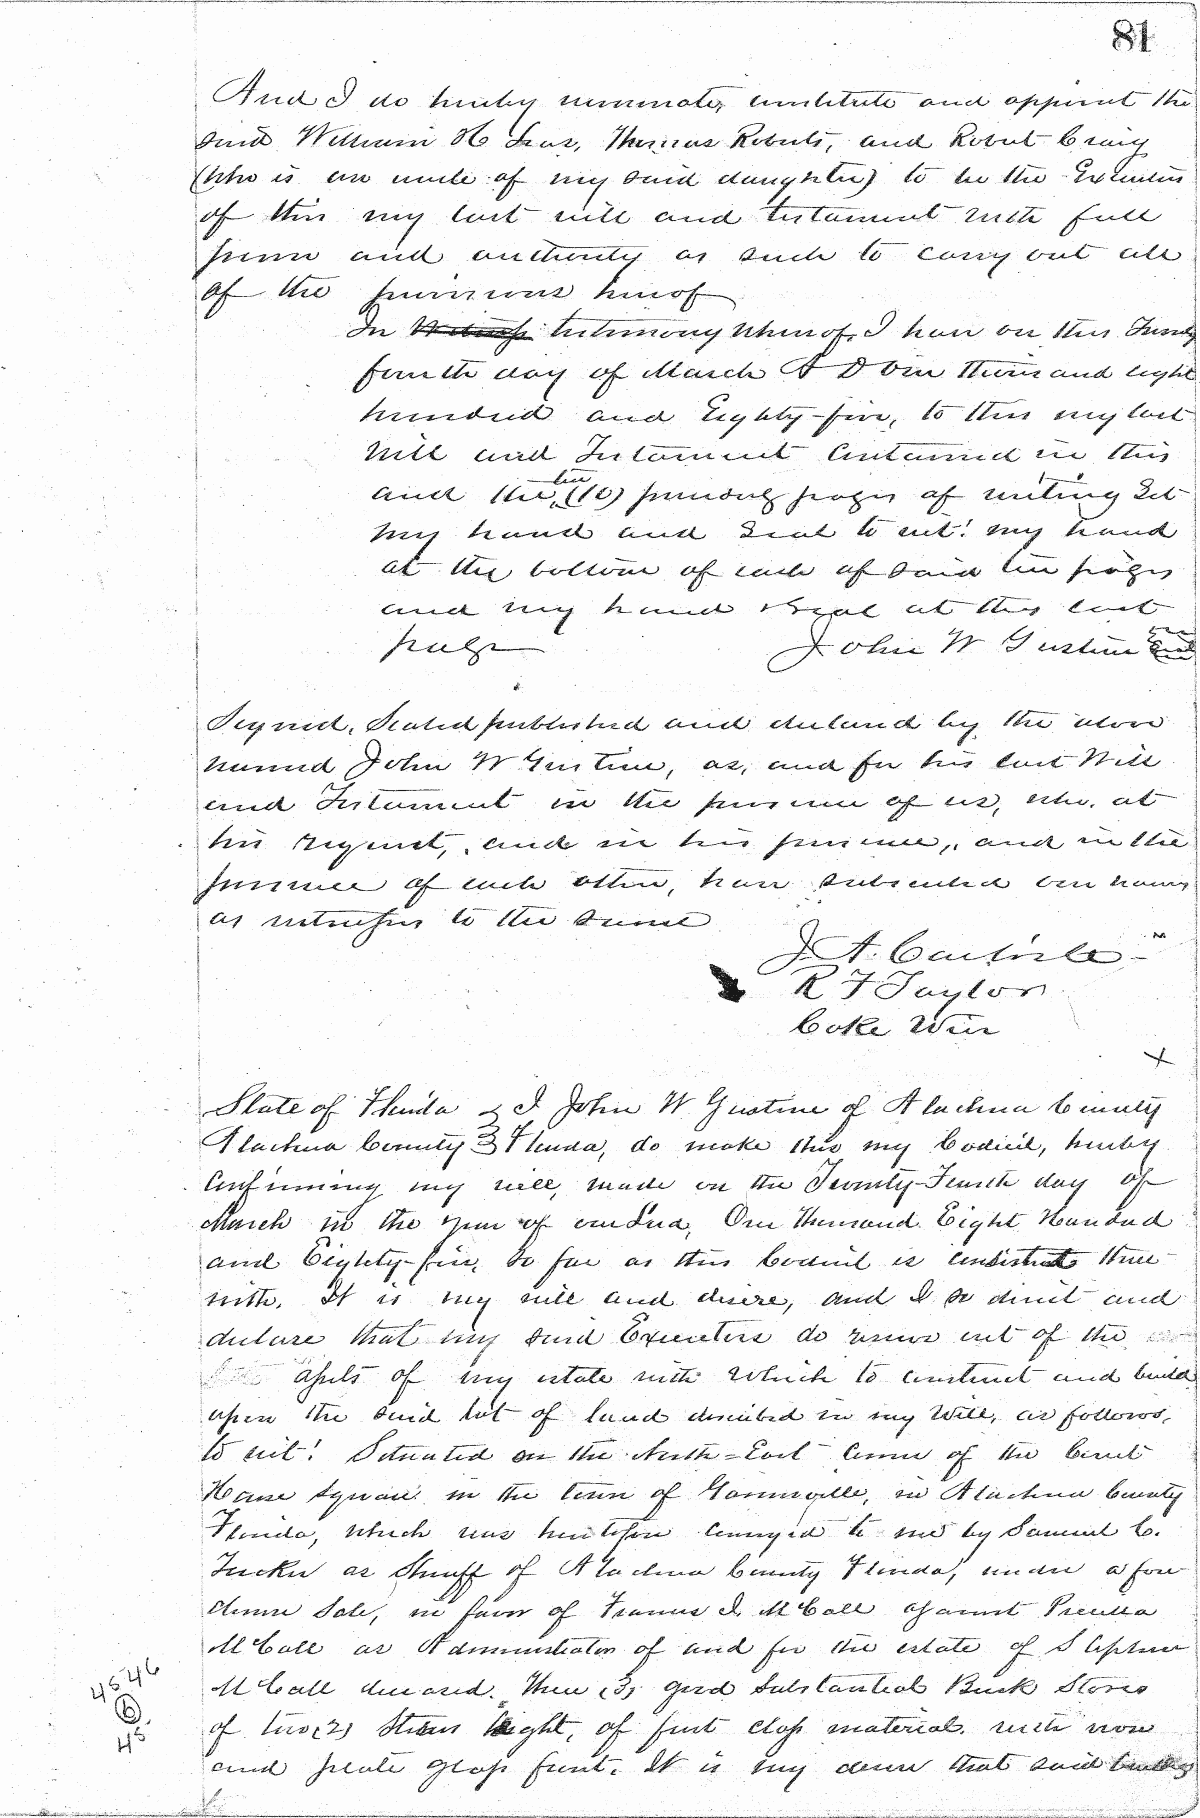 81
And I do hereby nominate, constitute and appoint the
said William H Thomas Roberts, and Robert Craig
(who is an uncle of my said daughter) to be the Executors
of this my last will and testament with full
power and authority as such to carry out all
of the provisions hereof
In Witness testimony whereof, I have on this Twenty
fourth day of March A D One Thousand eight
hundred and Eighty-five, to this my last
Will and Testament contained in this
and the ten (10) preceding pages of writing Set
my hand and Seal to wit: my hand
at the bottom of each of said ten pages
and my hand & Seal at this last
page John W Gustine Seal
Signed, Sealed published and declared by the above
named John W Gustine, as, and for his last Will
and Testament in the presence of us, who, at
his request, and in his presence, and in the
presence of each other, have subscribed our names
as witnesses to the same
J. A. Carlisle
R F Taylor
Coke Weir
State of Florida } I John W Gustine of Alachua County
Alachua County } Florida, do make this my Codicil, hereby
Confirming my will, made on the Twenty-Fourth day of
March in the year of our Lord, One Thousand Eight Hundred
and Eighty-five, so far as this Codicil is consistent there
with. It is my will and desire, and I so direct and
declare that my said Executors do reserve out of the
assets of my estate with which to construct and build
upon the said lot of land described in my Will, as follows,
to wit: Situated on the North-East Corner of the Court
House Square in the town of Gainesville, in Alachua County
Florida, which was heretofore conveyed to me by Samuel C.
Tucker as Sheriff of Alachua County Florida, under a fore
closure Sale, in favor of Francis I. McCall against
McCall as Administrator of and for the estate of Stephen
McCall deceased. Three (3) good substantial Brick Stores
of two (2) Stories height, of first class material, with iron
and plate glass front. It is my desire that said building
45 46
6
45